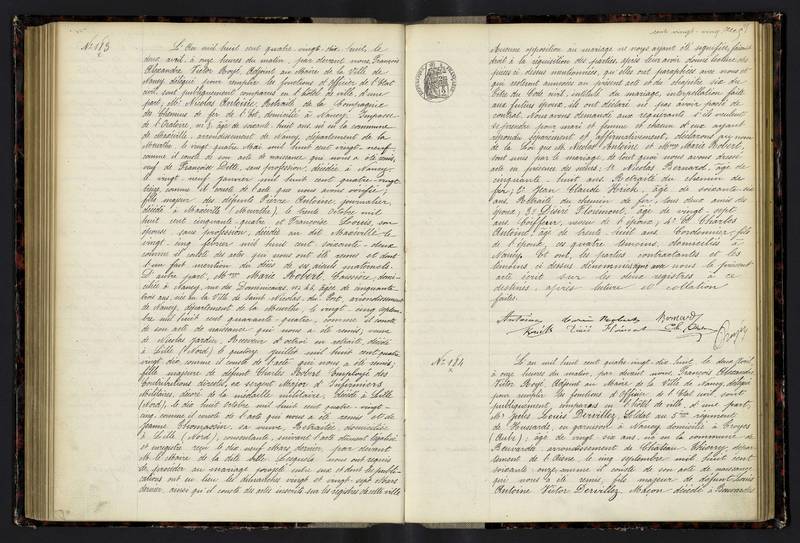 N° 183
L'an mil huit cent quatre-vingt-dix huit, le
deux avril, à onze heures du matin, par devant nous François
Alexandre Victor Boyé, Adjoint au Maire de la Ville de
Nancy délégué pour remplir les fonctions d'officier de l'Etat
civil, sont publiquement comparus en l'hôtel de ville, d'une
part, Mr Nicolas Antoine, Retraité de la Compagnie
des Chemins de fer de l'Est, domicilié à Nancy, Impasse
de l'Oratoire, n° 8, âgé de soixante huit ans né en la commune
de Maxéville, arrondissement de Nancy, département de la
Meurthe, le vingt quatre Mai mil huit cent vingt-neuf,
comme il conste de son acte de naissance qui nous a été remis,
veuf de Françoise Lotte, sans profession, décédée à Nancy
le vingt neuf janvier mil huit cent quatre-vingt
treize, comme il conste de l'acte que nous avons vérifié;
fils majeur des défunts Pierre Antoine, journalier,
décédé à Maxéville (Meurthe), le trente octobre mil
huit cent cinquante quatre et Françoise Louis, son
épouse sans profession, décédée au dit Maxéville le
vingt-cinq février mil huit cent soixante-deux
comme il conste des actes qui nous ont été remis et dont
l'un fait mention du décès de ses aïeuls maternels.
D'autre part, Mme Marie Robert, Caissière, domi-
ciliée à Nancy, rue des Dominicains, n° 44, âgée de cinquante
trois ans, née en la Ville de Saint Nicolas du Port, arrondissement
de Nancy, département de la Meurthe, le vingt-cinq septem-
bre mil huit cent quarante-quatre, comme il conste
de son acte de naissance qui nous a été remis, veuve
de Nicolas Jardin, Receveur d'octroi en retraite, décédé
à Lille (Nord) le quatorze juillet mil huit cent quatre
vingt dix, comme il conste de l'acte qui nous a été remis;
fille majeure de défunt Charles Robert Employé des
Contributions directes, ex sergent Major d'Infirmiers
Militaires, décoré de la médaille militaire, décédé à Lille
(Nord), le dix huit octobre mil huit cent quatre-vingt-
cinq, comme il conste de l'acte qui nous a été remis et de
Jeanne Thomassin, sa veuve, Retraitée, domiciliée
à Lille (Nord), consentante, suivant l'acte dûment légalisé
et enregistré reçu le dix neuf Mars dernier, par devant
Mr le Maire de la dite Ville. Lesquels nous ont requis
de procéder au mariage projeté entre eux et dont les publi-
cations ont eu lieu les dimanches vingt et vingt-sept Mars
dernier, ainsi qu'il conste des actes inscrits sur les registres de cette ville
cent vingt-cinq
Aucune opposition au mariage ne nous ayant été signifiée faisant
droit à la réquisition des parties après leur avoir donné lecture des
pièces ci dessus mentionnées, qu'elles ont paraphées avec nous et
qui resteront annexées au présent acte et du chapitre six du
titre du Code civil, intitulé du mariage, interpellation faite
aux futurs époux, ils ont déclaré n'avoir pas passé de
contrat. Nous avons demandé aux requérants s'ils veulent
se prendre pour mari et femme et chacun d'eux ayant
répondu séparément et affirmativement, déclarons au nom
de la Loi que Mr Nicolas Antoine et Mme Marie Robert,
sont unis par le mariage, de tout quoi nous avons dressé
acte en présence de mrs: 1° Nicolas Bernard, âgé de
cinquante huit ans Retraité du chemin de
fer; 2° Jean Claude Hrich, âgé de soixante-six
ans, Retraité du chemin de fer, tous deux amis des
époux; 3° Désiré Florimont, âgé de vingt sept
ans, Coiffeur, neveu de l'époux; 4° et Charles
Antoine, âgé de trente huit ans, Cordonnier, fils
de l'époux, ces quatre témoins, domiciliés à
Nancy. Et ont, les parties contractantes et les
témoins ci dessus dénommés signé avec nous le présent
acte écrit sur les deux registres à ce
destinés, après lecture et collation
faites.
Antoine Marie Robert Bernard
Désiré Florimont Ch. Antoine
Boyé
N° 184
L'an mil huit cent quatre-vingt-dix huit, le deux Avril,
à onze heures du matin, par devant nous, François Alexandre
Victor Boyé, Adjoint au Maire de la Ville de Nancy, délégué
pour remplir les fonctions d'Officier de l'Etat civil, sont
publiquement comparus en l'hôtel de ville, d'une part,
Mr Jules Louis Dervillez, Soldat au 5me régiment
de Hussards, en garnison à Nancy domicilié à Troyes
(Aube); âgé de vingt six ans, né en la commune de
Beuvardes arrondissement de Château-Thierry, dépar-
tement de l'Aisne, le cinq septembre mil huit cent
soixante-onze, comme il conste de son acte de naissance
qui nous a été remis, fils majeur de défunt Louis
Antoine Victor Dervillez Maçon décédé à Beuvardes